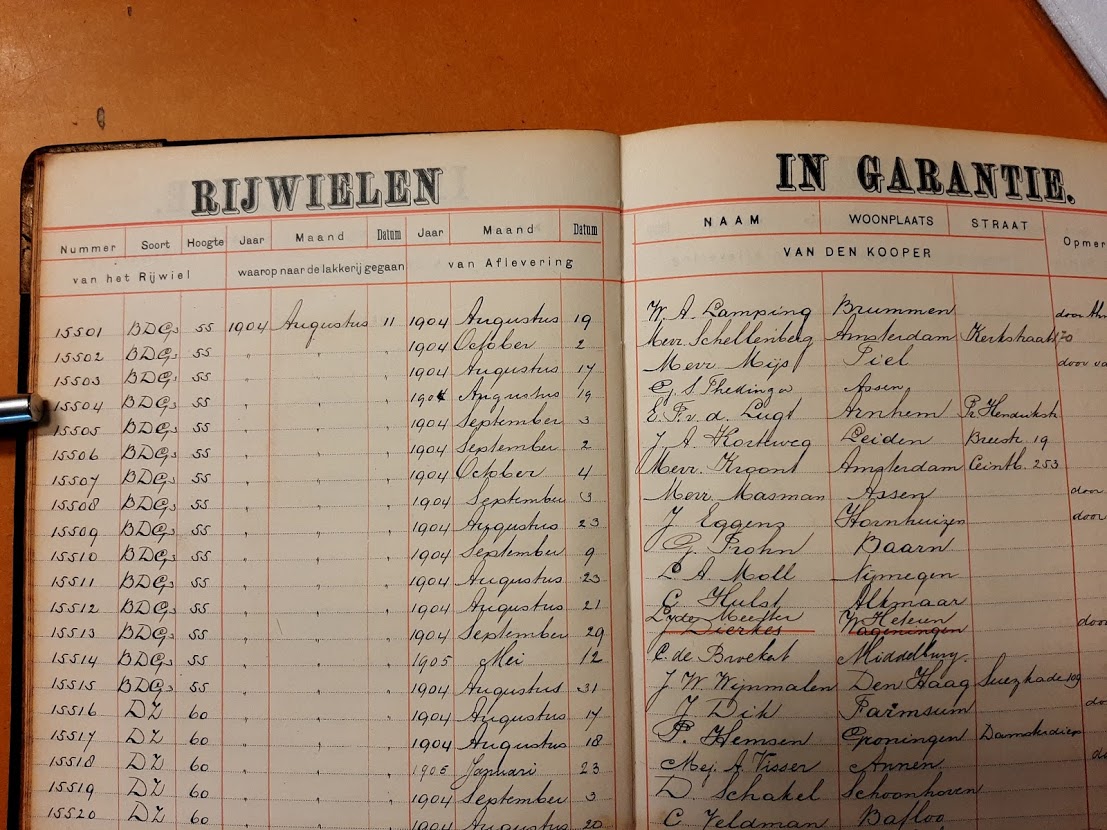 RIJWIELEN IN GARANTIE.
Nummer Soort Hoogte Jaar Maand Datum Jaar Maand Datum NAAM WOONPLAATS STRAAT
van het Rijwiel waarop naar de lakkerij gegaan van Aflevering VAN DEN KOOPER
15501 BDGs 55 1904 Augustus 11 1904 Augustus 19 W. A. Lamping Brummen door
15502 BDGs 55 " " " 1904 October 2 Mevr. Schellenberg Amsterdam Kerkstraat
15503 BDGs 55 " " " 1904 Augustus 17 Mevr. Mijs Tiel door
15504 BDGs 55 " " " 1904 Augustus 19 G. S. Thedinga Assen
15505 BDGs 55 " " " 1904 September 3 E. P. v. d. Lugt Arnhem Pr. Hendrikstr
15506 BDGs 55 " " " 1904 September 2 J. A. Korteweg Leiden Breestr. 19
15507 BDGs 55 " " " 1904 October 4 Mevr. Kroont Amsterdam Ceintb. 253
15508 BDGs 55 " " " 1904 September 3 Mevr. Masman Assen door
15509 BDGs 55 " " " 1904 Augustus 23 J. Eggens Hornhuizen door
15510 BDGs 55 " " " 1904 September 9 G. Prohn Baarn
15511 BDGs 55 " " " 1904 Augustus 23 L. A. Moll Nijmegen
15512 BDGs 55 " " " 1904 Augustus 21 C. Hulst Alkmaar
15513 BDGs 55 " " " 1904 September 29 Meester J. Dierkes Wageningen door
15514 BDGs 55 " " " 1905 Mei 12 C. de Broekert Middelburg.
15515 BDGs 55 " " " 1904 Augustus 31 J. W. Wijnmalen Den Haag Suezkade 109
15516 DZ 60 " " " 1904 Augustus 17 J. Dik Farmsum
15517 DZ 60 " " " 1904 Augustus 18 P. Hemsen Groningen Damsterdiep
15518 DZ 60 " " " 1905 Januari 23 Mej. A. Visser Annen
15519 DZ 60 " " " 1904 September 3 D. Schakel Schoonhoven
15520 DZ 60 " " " 1904 Augustus 20 C. Veldman Bafloo